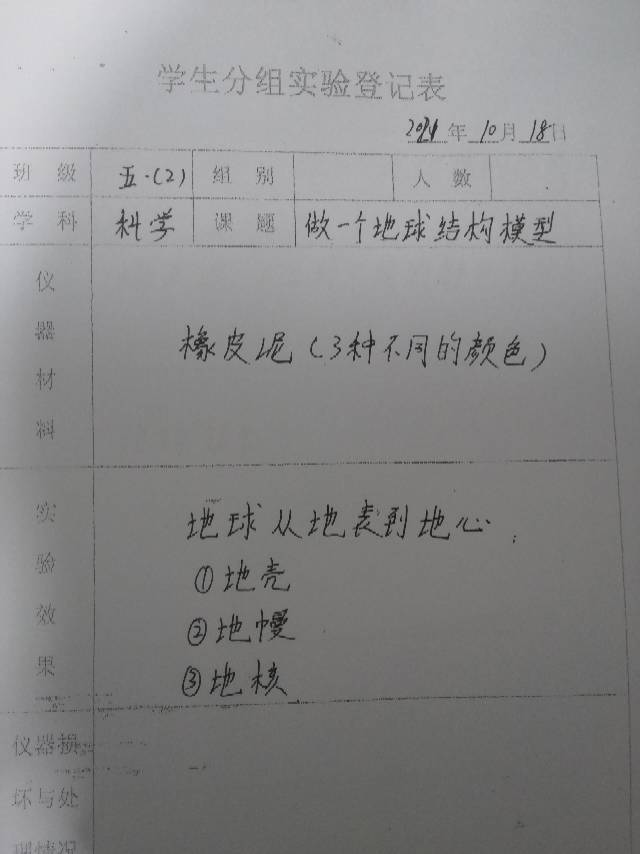 学生分组实验登记表
2021年10月18日
班级 五.(2) 组别 人数
学科 科学 课题 做一个地球结构模型
仪器材料 橡皮泥(3种不同的颜色)
实验效果 地球从地表到地心:
①地壳
②地幔
③地核
仪器损
坏与处
理情况